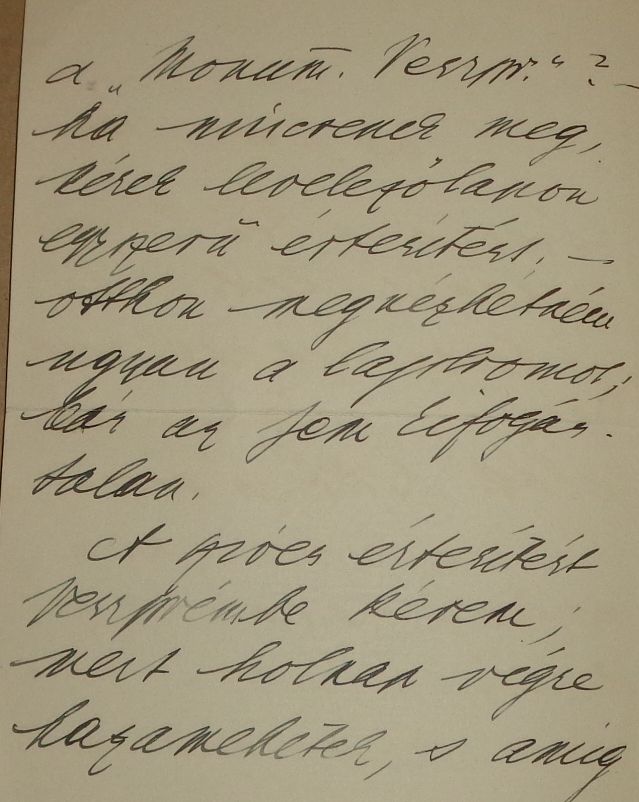 a „Monum. Veszpr." ? —
ha nincsenek meg,
kérek levelezőlapon
egyszerű értesítést. —
otthon megnézhetném
ugyan a lajstromot;
bár az sem kifogás-
talan.
A szíves értesítést
Veszprémbe kérem;
mert holnap végre
hazamehetek, s amíg